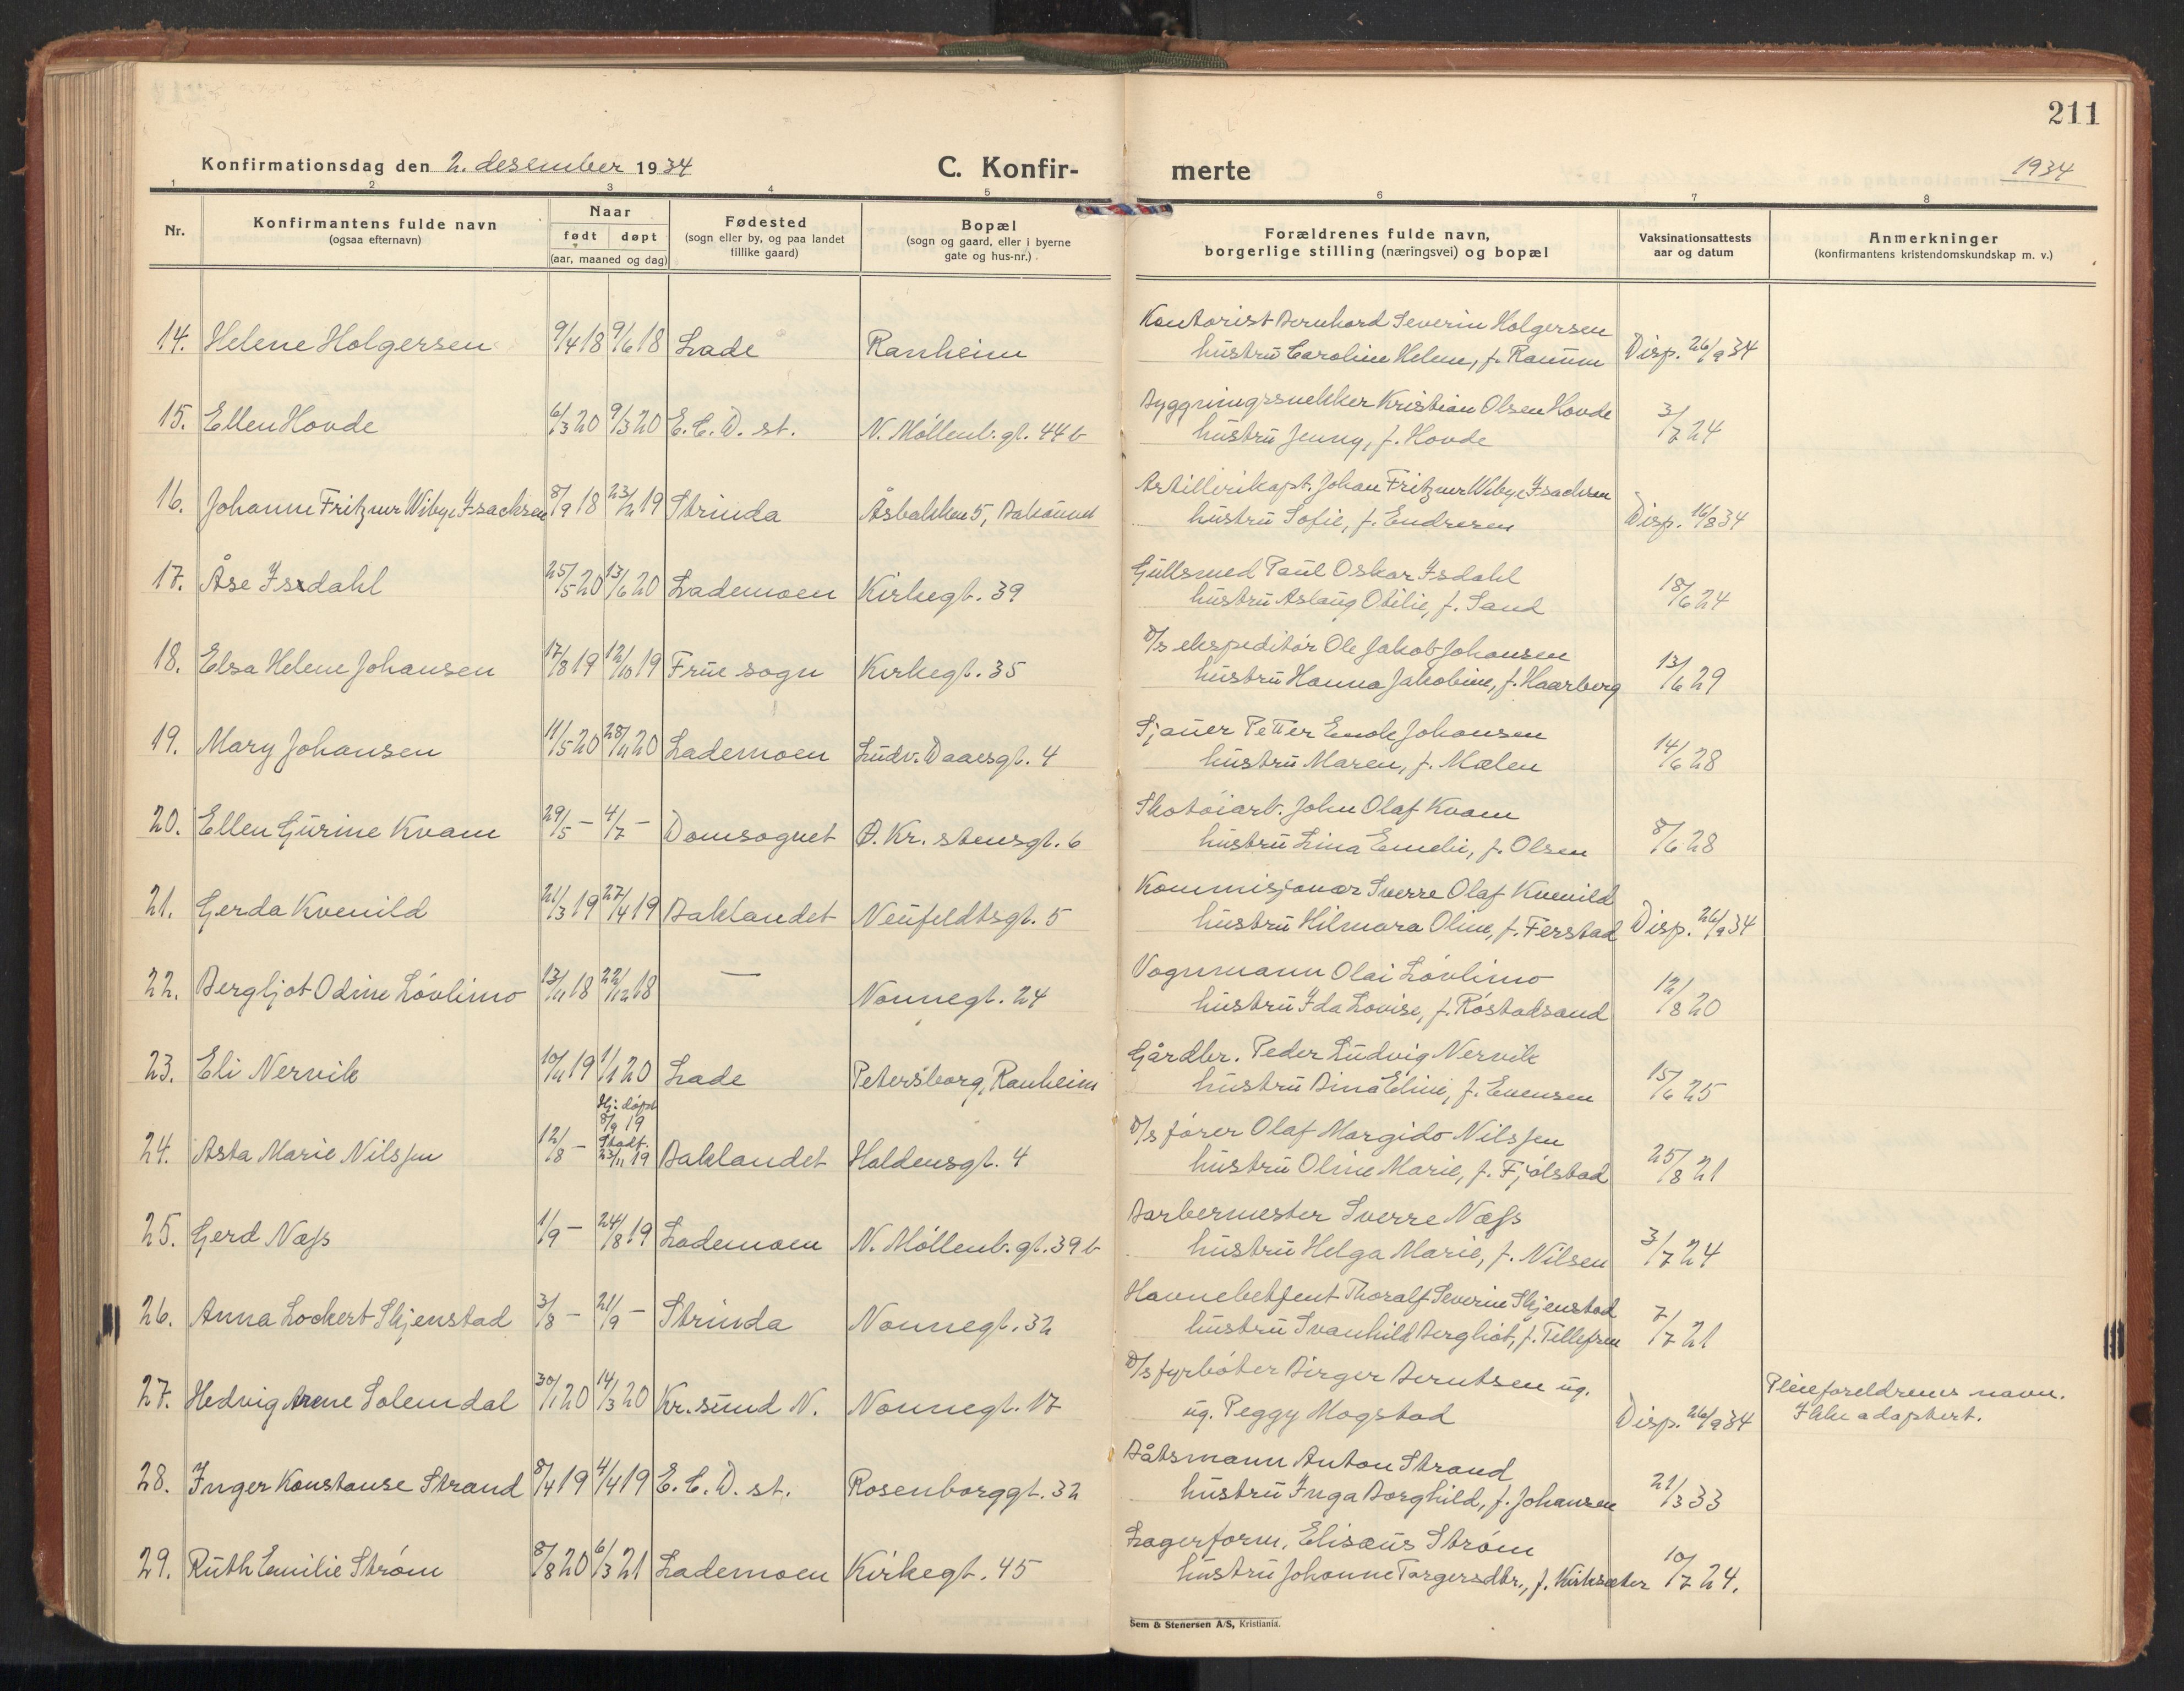 211
Konfirmationsdag den 2. desember 1934
C. Konfir-
merte
1934
1 2 3 4 5 6 7 8
Nr.
Konfirmantens fulde navn
(ogsaa efternavn)
Naar
født døpt
(aar, maaned og dag)
Fødested
(sogn eller by, og paa landet
tillike gaard)
Bopæl
(sogn og gaard, eller i byerne
gate og hus-nr.)
Forældrenes fulde navn,
borgerlige stilling (næringsvei) og bopæl
Vaksinationsattests
aar og datum
Anmerkninger
(konfirmantens kristendomskundskap m. v.)
14. Helene Holgersen 9/4 18 9/6 18 Lade Ranheim
Kontorist Bernhard Severin Holgersen
hustru Caroline Helene, f. Ranum Disp. 26/9 34
15. Ellen Hovde 6/3 20 9/3 20 E.C.D. st. N. Möllenb. gt. 44 b
Byggningssnekker Kristian Olsen Hovde
hustru Jenny, f. Hovde 3/7 24
16. Johanne Fritzner Wibye Isachsen 8/9 18 23/2 19 Strinda Åsbakken 5, Bakaunet
Artillerikapt. Johan Fritzner Wibye Isachsen
hustru Sofie, f. Endresen Disp. 16/8 34
17. Åse Isdahl 25/5 20 13/6 20 Lademoen Kirkegt. 39
Gullsmed Paul Oskar Isdahl
hustru Aslaug Otilie, f. Sand 18/6 24
18. Elsa Helene Johansen 17/8 19 12/10 19 Frue sogn Kirkegt. 35
D/s ekspeditör Ole Jakob Johansen
hustru Hanna Jakobine, f. Haarberg 13/6 29
19. Mary Johansen 11/5 20 28/11 20 Lademoen Ludv. Daaesgt. 4
Sjauer Petter Enok Johansen
hustru Maren, f. Mælen 14/6 28
20. Ellen Gurine Kvam 29/5 - 4/7 - Domsognet Ö. Kr. stensgt. 6
Skotöiarb. John Olaf Kvam
hustru Lina Emelie, f. Olsen 8/6 28
21. Gerda Kvenild 21/3 19 27/4 19 Baklandet Neufeldtsgt. 5
Kommisjonær Sverre Olaf Kvenild
hustru Hilmara Oline, f. Ferstad Disp. 26/9 34
22. Bergljot Odine Lövlimo 13/11 18 22/12 18 — Nonnegt. 24
Vognmann Olai Lövlimo
hustru Ida Lovise, f. Röstadsand 12/8 20
23. Eli Nervik 10/11 19 1/1 20 Lade Petersborg, Ranheim
Gårdbr. Peder Ludvig Nervik
hustru Dina Eline, f. Evensen 15/6 25
24. Asta Marie Nilssen 12/8 - Hj: döpt
8/9 19
Stadf.
23/11 19 Baklandet Haldensgt. 4
D/s förer Olaf Margido Nilssen
hustru Oline Marie, f. Fjölstad 25/8 21
25. Gerd Næss 1/9 - 24/8 19 Lademoen N. Möllenb. gt. 39 b
Barbermester Sverre Næss
hustru Helga Marie, f. Nilsen 3/7 24
26. Anna Lockert Skjenstad 3/8 - 21/9 - Strinda Nonnegt. 32
Havnebetjent Thoralf Severin Skjenstad
hustru Svanhild Bergliot, f. Tillefsen 7/7 21
27. Hedvig Arene Solemdal 30/1 20 14/3 20 Kr. sund N. Nonnegt. 17
D/s fyrböter Birger Berntsen ug.
ug. Peggy Mogstad Disp. 26/9 34 Pleieforeldrenes navn.
Ikke adoptert.
28. Inger Konstanse Strand 8/4 19 4/4 19 E.C.D. st. Rosenborggt. 32
Båtsmann Anton Strand
hustru Inga Borghild, f. Johansen 21/3 33
29. Ruth Emilie Ström 8/8 20 6/3 21 Lademoen Kirkegt. 45
Lagerform. Elisæus Ström
hustru Johanne Torgersdtr., f. Kirksæter 10/7 24.
Sem & Stenersen A/S, Kristiania.